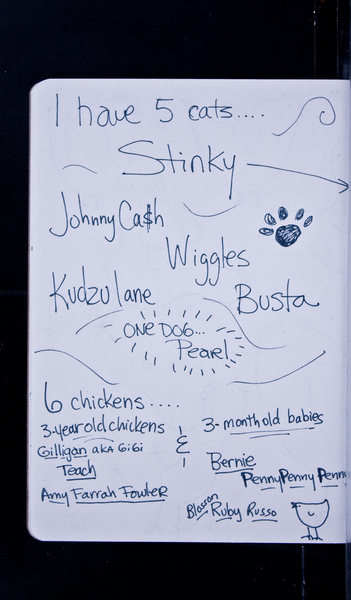 I have 5 cats....
Stinky
Johnny Ca$h
Wiggles
Kudzu lane
Busta
ONE DOG...
Pearl
6 chickens....
3-year old chickens & 3-month old babies
Gilligan aka GiGi
Teach
Bernie
PennyPenny Penny
Amy Farrah Fowler
Ruby Russo